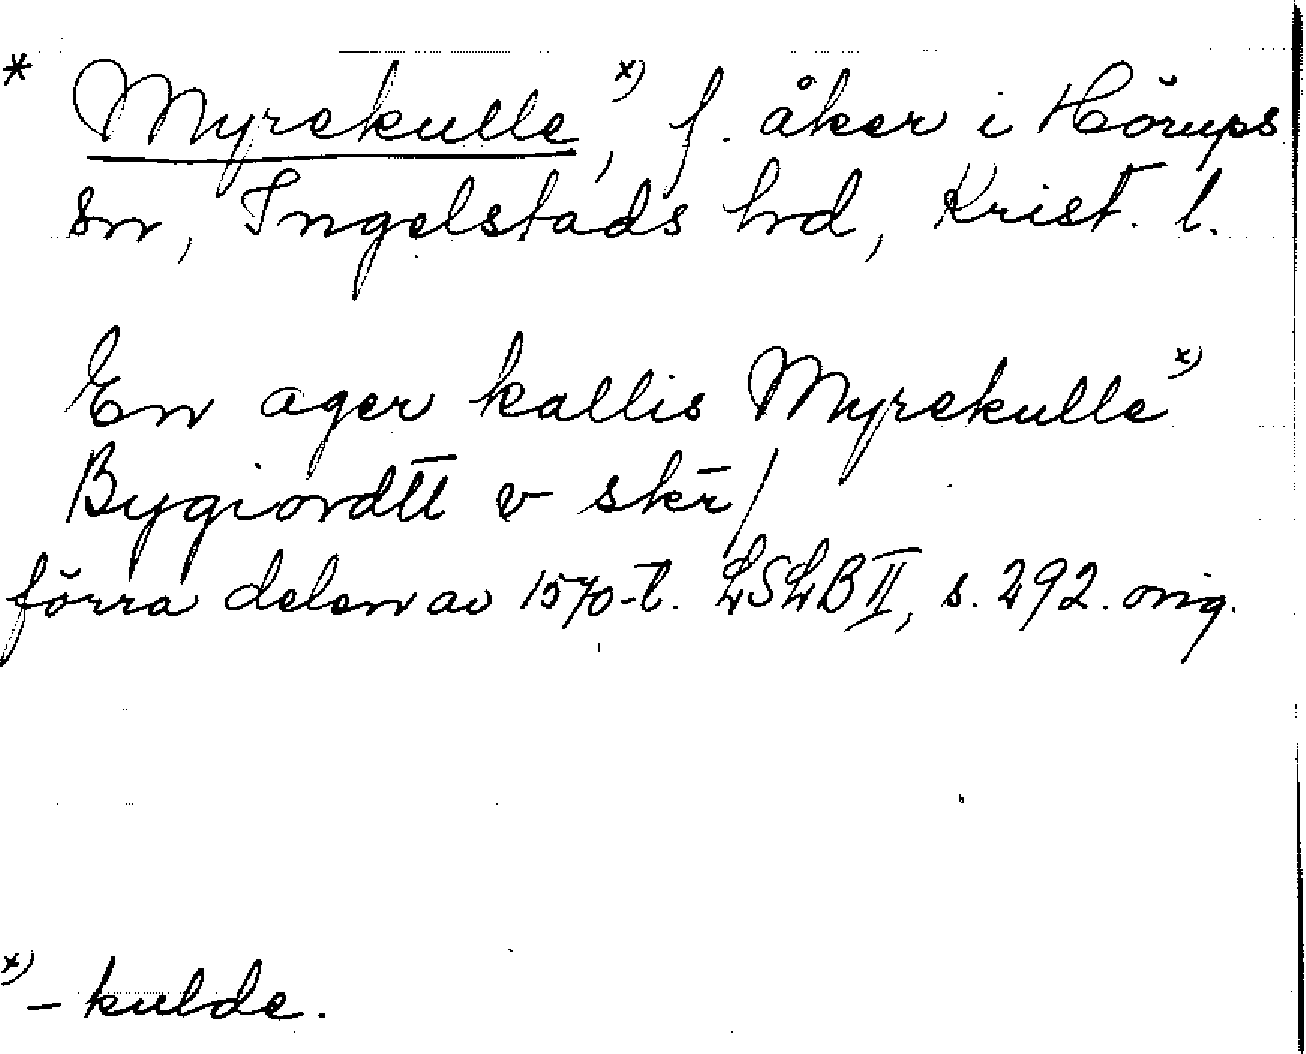 * Myrekulle x), f. åker i Hörups
sn, Ingelstads hd, Krist. l.
En ager kallis Myrekulle x)
Bygiordtt v skr/
förra delen av 1570-t. LSLB II, s. 292. orig.
x) - kulde.